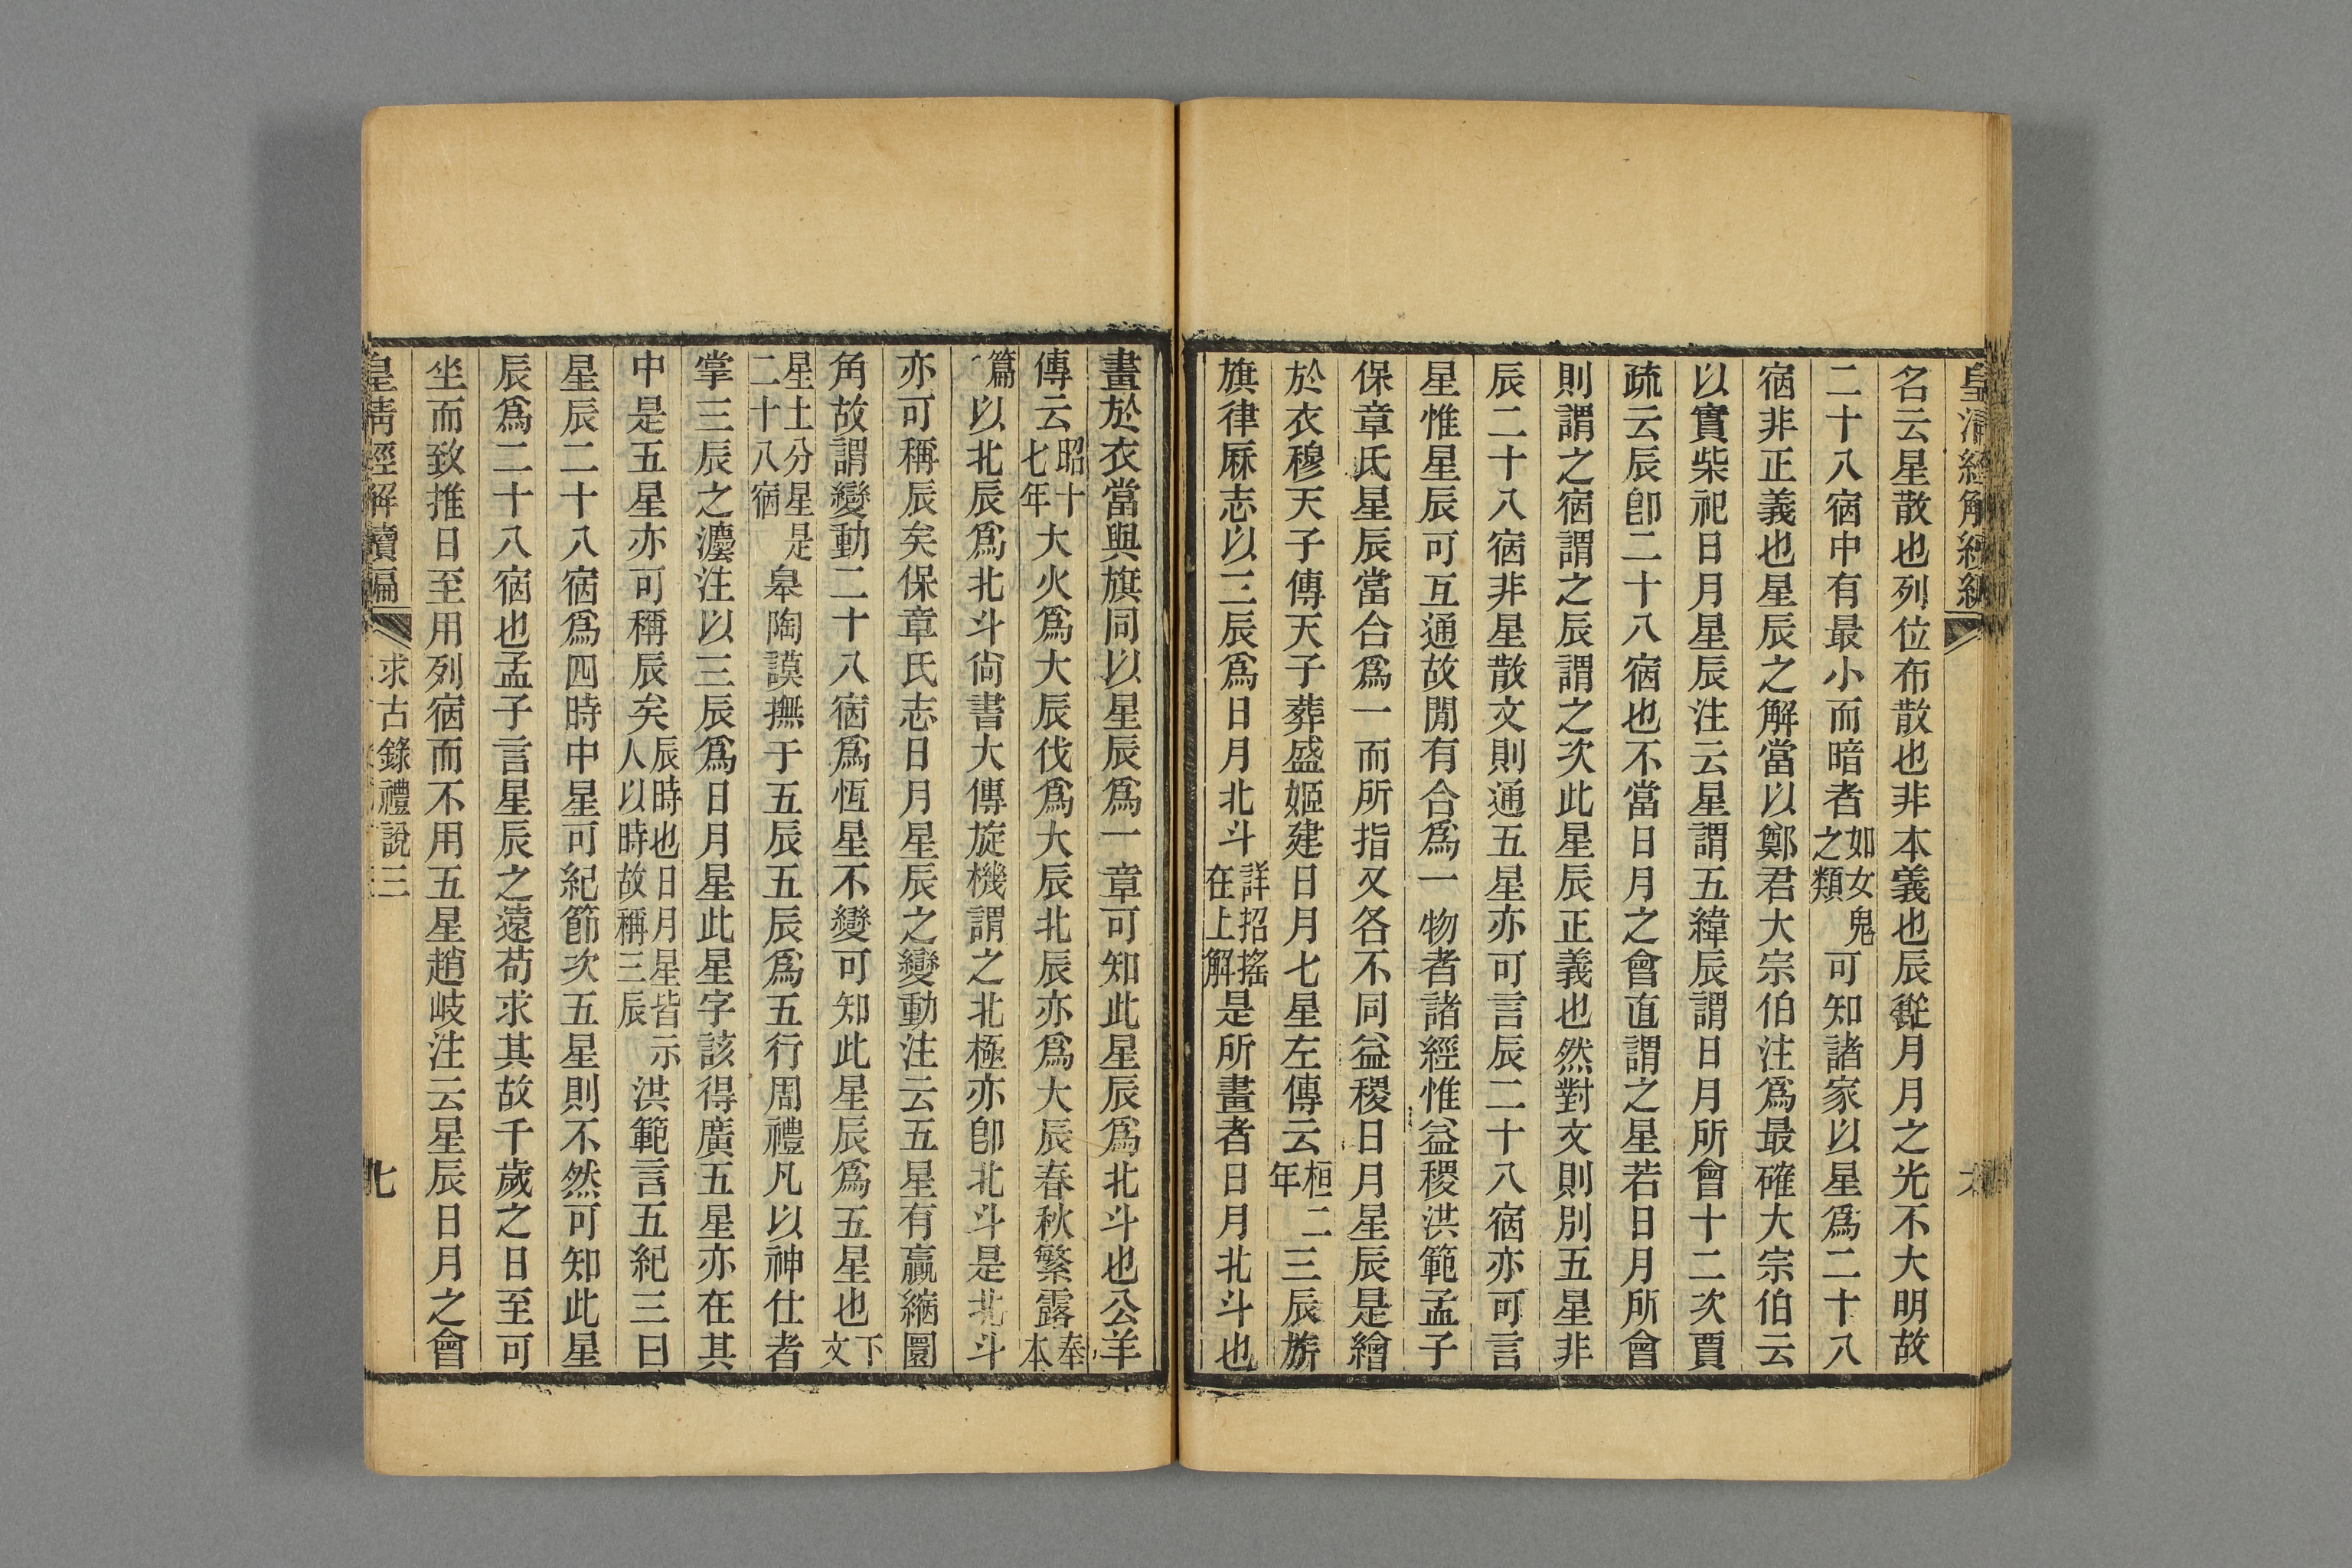 皇清經解續編
名云星散也列位布散也非本義也辰從月月之光不大明故
二十八宿中有最小而暗者如女鬼之類可知諸家以星爲二十八
宿非正義也星辰之解當以鄭君大宗伯注爲最確大宗伯云
以實柴祀日月星辰注云星謂五緯辰謂日月所會十二次賈
疏云辰卽二十八宿也不當日月之會直謂之星若日月所會
則謂之宿謂之辰謂之次此星辰正義也然對文則別五星非
辰二十八宿非星散文則通五星亦可言辰二十八宿亦可言
星惟星辰可互通故閒有合爲一物者諸經惟益稷洪範孟子
保章氏星辰當合爲一而所指又各不同益稷日月星辰是繪
於衣穆天子傳天子葬盛姬建日月七星左傳云桓二年三辰旂
旗律厤志以三辰爲日月北斗詳招搖在上解是所畫者日月北斗也
畫於衣當與旗同以星辰爲一章可知此星辰爲北斗也公羊
傳云昭十七年大火爲大辰伐爲大辰北辰亦爲大辰春秋繁露奉本
篇以北辰爲北斗尙書大傳旋機謂之北極亦卽北斗是北斗
亦可稱辰矣保章氏志日月星辰之變動注云五星有贏縮圜
角故謂變動二十八宿爲恆星不變可知此星辰爲五星也下文
星土分星是二十八宿皋陶謨撫于五辰五辰爲五行周禮凡以神仕者
掌三辰之灋注以三辰爲日月星此星字該得廣五星亦在其
中是五星亦可稱辰矣辰時也日月星皆示人以時故稱三辰洪範言五紀三曰
星辰二十八宿爲四時中星可紀節次五星則不然可知此星
辰爲二十八宿也孟子言星辰之遠苟求其故千歲之日至可
坐而致推日至用列宿而不用五星趙岐注云星辰日月之會
皇清經解續編 求古錄禮說三 七